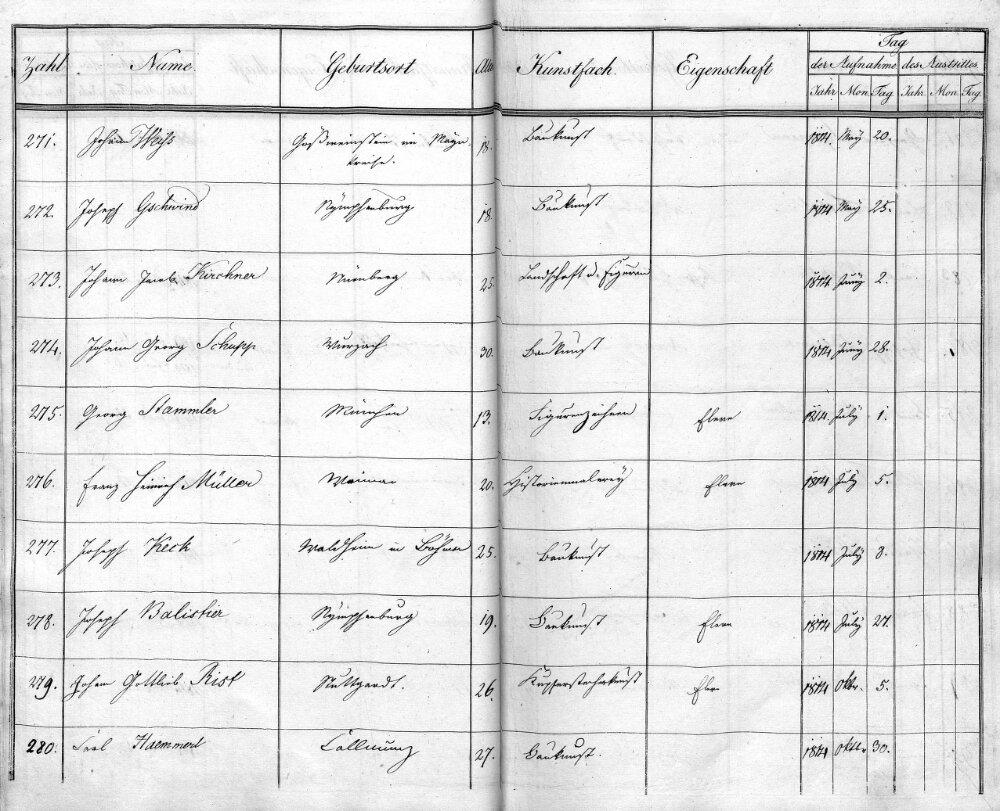 Tag
Zahl Name. Geburtsort Alter Kunstfach. Eigenschaft der Aufnahme des Austrittes.
Jahr Mon. Tag Jahr. Mon. Tag.
271. Johann Weyß Goßweinstein im Mayn 18. Baukunst 1814. May 20.
kreise.
272. Joseph Gschwind Nÿmphenburg 18. Baukunst 1814 May 25.
273. Johann Jacob Kirchner Nürnberg 25. Landschaft u. Figuren 1814. Juny 2.
274. Johann Georg Schupp Wurzach 30. Baukunst 1814 Juny 28.
275. Georg Stammler München 13. Figurenzeichnen Eleve 1814. July 1.
276. Franz Heinrich Müller Weimar 20. Historienmalerey Eleve 1814 July 5.
277. Joseph Keck Waldheim in Böhmen 25. Baukunst 1814 July 3.
278. Joseph Balistier Nÿmphenburg 19. Baukunst Eleve 1814 July 27.
279. Johan Gottlieb Rist Stuttgardt. 26. Kupferstecherkunst Eleve 1814 Oktbr. 5.
280. Carl Haemmerl 27. Baukunst. 1814 Oktbr. 30.